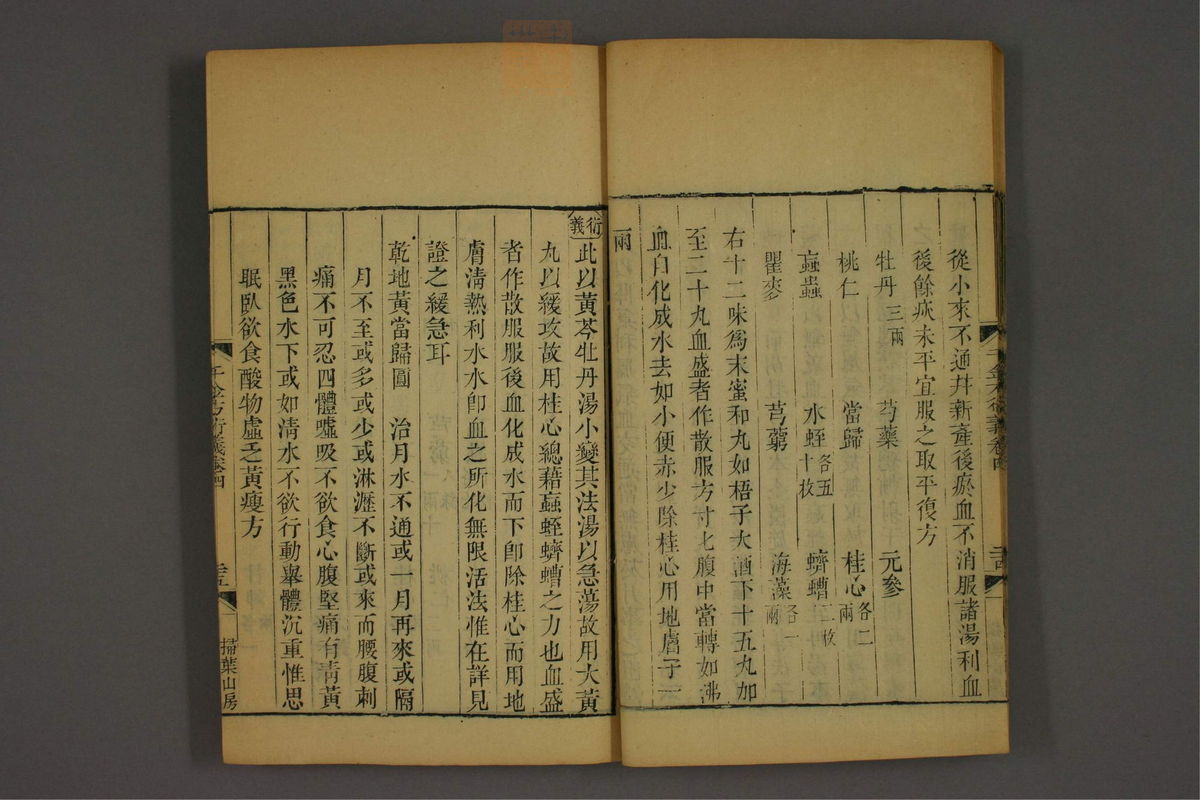 千金方衍義卷四
從小來不通并新產後瘀血不消服諸湯利血
後餘疢未平宜服之取平復方
牡丹三兩 芍藥 元參
桃仁 當歸 桂心各二兩
蝱蟲 水蛭各五十枚 蠐螬二十枚
瞿麥 芎藭 海藻各一兩
右十二味爲末蜜和丸如梧子大酒下十五丸加
至二十丸血盛者作散服方寸匕腹中當轉如沸
血自化成水去如小便赤少除桂心用地膚子一
兩
衍義 此以黃芩牡丹湯小變其法湯以急蕩故用大黃
丸以緩攻故用桂心總藉蝱蛭蠐螬之力也血盛
者作散服服後血化成水而下卽除桂心而用地
膚淸熱利水水卽血之所化無限活法惟在詳見
證之緩急耳
乾地黃當歸圓 治月水不通或一月再來或隔
月不至或多或少或淋瀝不斷或來而腰腹刺
痛不可忍四體噓吸不欲食心腹堅痛有靑黃
黑色水下或如淸水不欲行動舉體沉重惟思
眠臥欲食酸物虛乏黃瘦方
千金方衍義卷四
掃葉山房